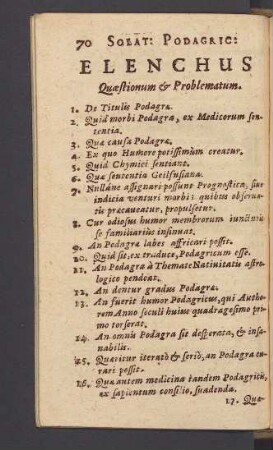 70 SOLAT: PODAGRIC:
ELENCHUS
Quæstionum & Problematum.
1. De Titulis Podagra.
2. Quid morbi Podagra, ex Medicorum sen-
tentia.
3. Quæ causa Podagræ.
4. Ex quo Humore potissimùm creatur.
5. Quid Chymici sentiant.
6. Quæ sententia Geilfusiana.
7. Nullane assignari possint Prognostica, siue
indicia venturi morbi: quibus obserua-
tis præcaueatur, propulsetur.
8. Cur odiosus humor membrorum iunctu-
se familiarius insinuat.
9. An Podagra labes affricari possit.
10. Quid sit, ex traduce, Podagricum esse.
11. An Podagra à Themate Natiuitatis astro-
logico pendeat.
12. An dentur gradus Podagra.
13. An fuerit humor Podagricus, qui Luthe-
rem Anno seculi huius quadragesimo pri-
mo torserat.
14. An omnis Podagra sit desperata, & insa-
nabilis.
15. Quæritur iteratò & seriò, an Podagra cu-
rari possit.
16. Quæ autem medicina tandem Podagricis,
ex sapientum consilio, suadenda.
17. Quæ-